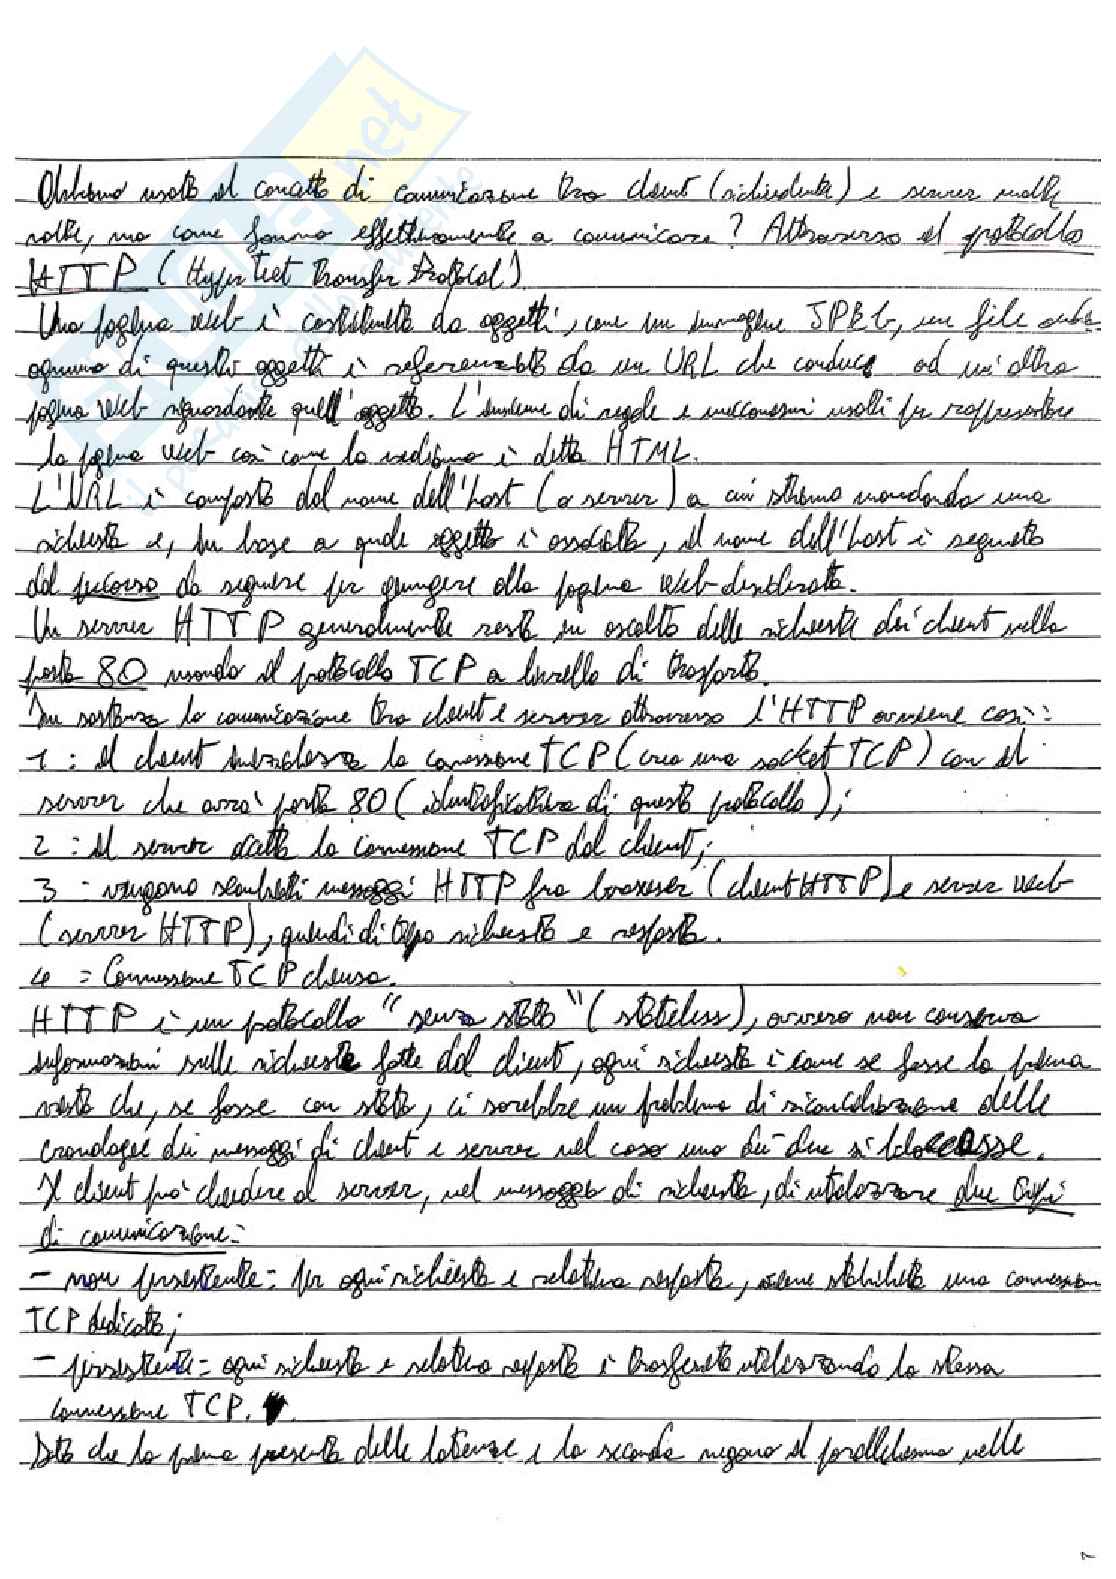 Abbiamo usato il concetto di comunicazione tra client (richiedente) e server molte
volte, ma come fanno effettivamente a comunicare? Attraverso il protocollo
HTTP (HyperText Transfer Protocol).
Una pagina web è costituita da oggetti, come un immagine JPEG, un file
ognuno di questi oggetti è referenziato da un URL che conduce ad un'altra
pagina web riguardante quell'oggetto. L'insieme di regole e meccanismi usati per rappresentare
la pagina web così come la vediamo è detta HTML.
L'URL è composto dal nome dell'host (o server) a cui stiamo mandando una
richiesta e, in base a quale oggetto è associata, il nome dell'host è seguito
dal percorso da seguire per giungere alla pagina web desiderata.
Un server HTTP generalmente resta in ascolto delle richieste dei client nella
porta 80 usando il protocollo TCP a livello di trasporto.
In sostanza la comunicazione tra client e server attraverso l'HTTP avviene così:
1: il client inizializza la connessione TCP (crea una socket TCP) con il
server che avrà porta 80 (identificativa di questo protocollo);
2: il server accetta la connessione TCP dal client;
3: vengono scambiati messaggi HTTP fra browser (client HTTP) e server web
(server HTTP), quindi di tipo richiesta e risposta.
4: Connessione TCP chiusa.
HTTP è un protocollo "senza stato" (stateless), ovvero non conserva
informazioni sulle richieste fatte dal client, ogni richiesta è come se fosse la prima
visto che, se fosse con stato, ci sarebbe un problema di riconciliazione delle
cronologie dei messaggi di client e server nel caso uno dei due si bloccasse.
Il client può chiedere al server, nel messaggio di richiesta, di utilizzare due tipi
di comunicazione:
- non persistente: per ogni richiesta e relativa risposta, viene stabilita una connessione
TCP dedicata;
- persistente: ogni richiesta e relativa risposta è trasferita utilizzando la stessa
connessione TCP.
Dato che la prima presenta delle latenze e la seconda negano il parallelismo nelle